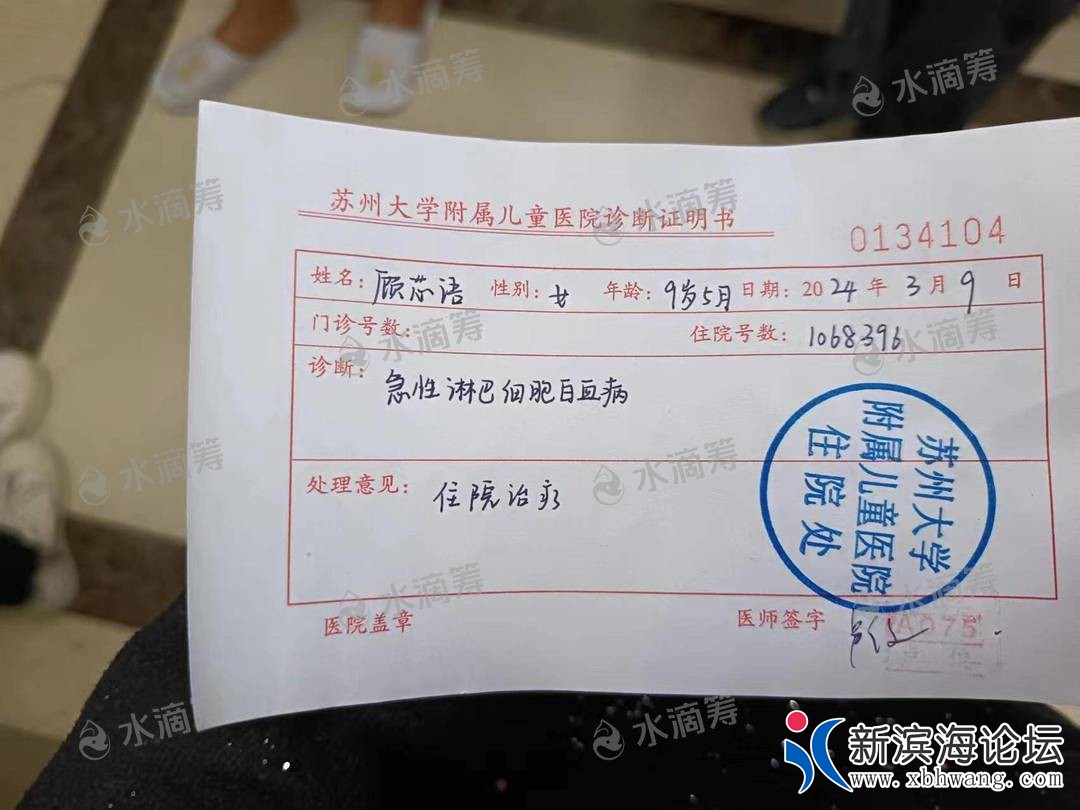 苏州大学附属儿童医院诊断证明书
0134104
姓名：顾芯语 性别：女 年龄：9岁5月 日期：2024年3月9日
门诊号数： 住院号数：1068396
诊断：急性淋巴细胞白血病
处理意见：住院治疗
苏州大学
附属儿童医院
住院处
医院盖章 医师签字
A075
水滴筹
水滴筹
水滴筹
水滴筹
水滴筹
水滴筹
水滴筹
水滴筹
水滴筹
水滴筹
水滴筹
水滴筹
水滴筹
新滨海论坛
www.xbhwang.com